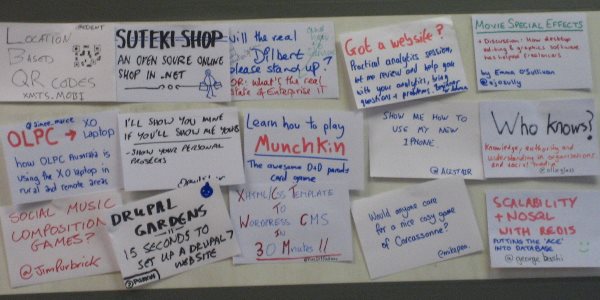 LOCATION
BASED
QR CODES
XMTS.MOBI
SUTEKI SHOP
AN OPEN SOURE ONLINE
SHOP IN .NET
Will the real
Dilbert
please stand up?
OR: what's the real
state of Enterprise it
Got a website?
Practical analytics session,
let me review and help you
with your analytics, bring
questions + problems. Together
MOVIE SPECIAL EFFECTS
Discussion: How desktop
editing & graphics software
has helped freelancers
by Emma O'Sullivan
OLPC → XO
Laptop
how OLPC Australia is
using the XO laptop in
rural and remote areas
I'LL SHOW YOU MINE
IF YOU'LL SHOW ME YOURS
- SHOW YOUR PERSONAL
PROJECTS
Learn how to play
Munchkin
The awesome D&D parody
card game
SHOW ME HOW TO
USE MY NEW
IPHONE
@ALISTAIR
Who knows?
Knowledge, authority and
understanding in organisations
and social media
SOCIAL MUSIC
COMPOSITION
GAMES?
@JimPurbrick
DRUPAL
GARDENS
15 SECONDS TO
SET UP A DRUPAL 7
WEBSITE
XHTML/CSS TEMPLATE
TO
WORDPRESS CMS
IN
30 MINUTES!!
Would anyone care
for a nice cosy game
of Carcassonne?
SCALABILITY
+ NOSQL
WITH REDIS
PUTTING THE 'ACE'
INTO DATABASE